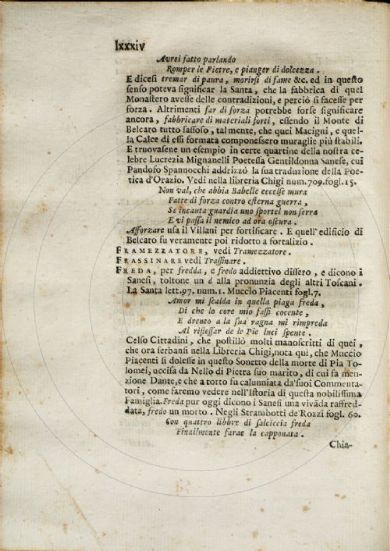 lxxxiv
Avrei fatto parlando
Romper le Pietre, e pianger di dolcezza.
E dicesi tremar di paura, morirsi di fame &c. ed in questo
senso poteva significar la Santa, che la fabbrica di quel
Monastero avesse delle contradizioni, e perciò si facesse per
forza. Altrimenti far di forza potrebbe forse significare
ancora, fabbricare di materiali forti, essendo il Monte di
Belcaro tutto sassoso, talmente, che quei Macigni, e quel-
la Calce di essi formata componessero muraglie più stabili.
E truovasene un esempio in certe quartine della nostra ce-
lebre Lucrezia Mignanelli Poetessa Gentildonna Sanese, cui
Pandolfo Spannocchi addrizzò la sua traduzione della Poe-
tica d'Orazio. Vedi nella libreria Chigi num. 709. fogl. 15.
Non val, che abbia Babelle eccelse mura
Fatte di forza contro esterna guerra,
Se incauta guardia uno sportel non serra
E vi passa il nemico ad ora oscura.
Afforzare usa il Villani per fortificare. E quell'edificio di
Belcaro fu veramente poi ridotto a fortalizio.
FRAMEZZATORE, vedi Tramezzatore.
FRASSINARE vedi Trassinare.
FREDA, per fredda, e fredo addiettivo dissero, e dicono i
Sanesi, toltone un d alla pronunzia degli altri Toscani.
La Santa lett. 97. num. 1. Muccio Piacenti fogl. 7.
Amor mi scalda in quella piaga freda,
Di che lo core mio fassi cocente,
E drento a la sua ragna mi rimpreda
Al riflessar de lo Pie luci spente.
Celso Cittadini, che postillò molti manoscritti di quei,
che ora serbansi nella Libreria Chigi, nota qui, che Muccio
Piacenti si dolesse in questo Sonetto della morte di Pia To-
lomei, uccisa da Nello di Pietra suo marito, di cui fa men-
zione Dante, e che a torto fu calunniata da' suoi Commenta-
tori, come faremo vedere nell'Istoria di questa nobilissima
Famiglia. Freda pur oggi dicono i Sanesi una vivanda raffred-
data, fredo un morto. Negli Strambotti de' Rozzi fogl. 60.
Con quattro libbre di salciccia freda
Finalmente farae la capponata.
Chia-